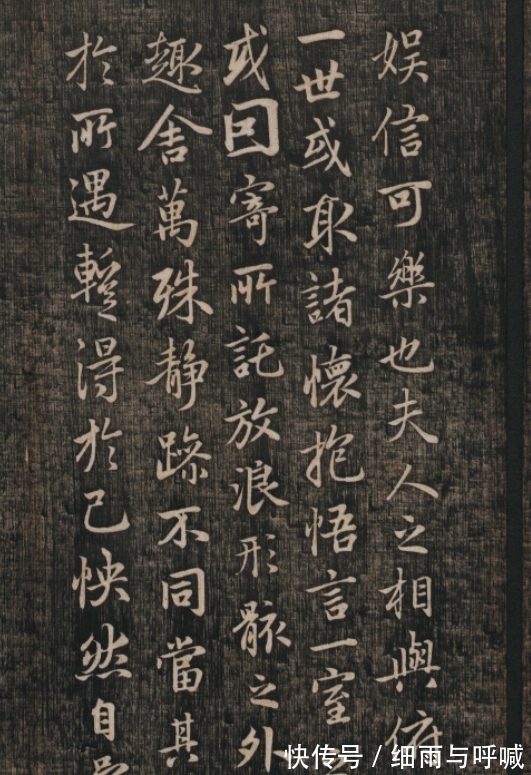 娛信可樂也夫人之相與俯
一世或取諸懷抱悟言一室
或因寄所託放浪形骸之外
趣舍萬殊静躁不同當其
於所遇暫得於己怏然自
快传号 / 细雨与呼喊